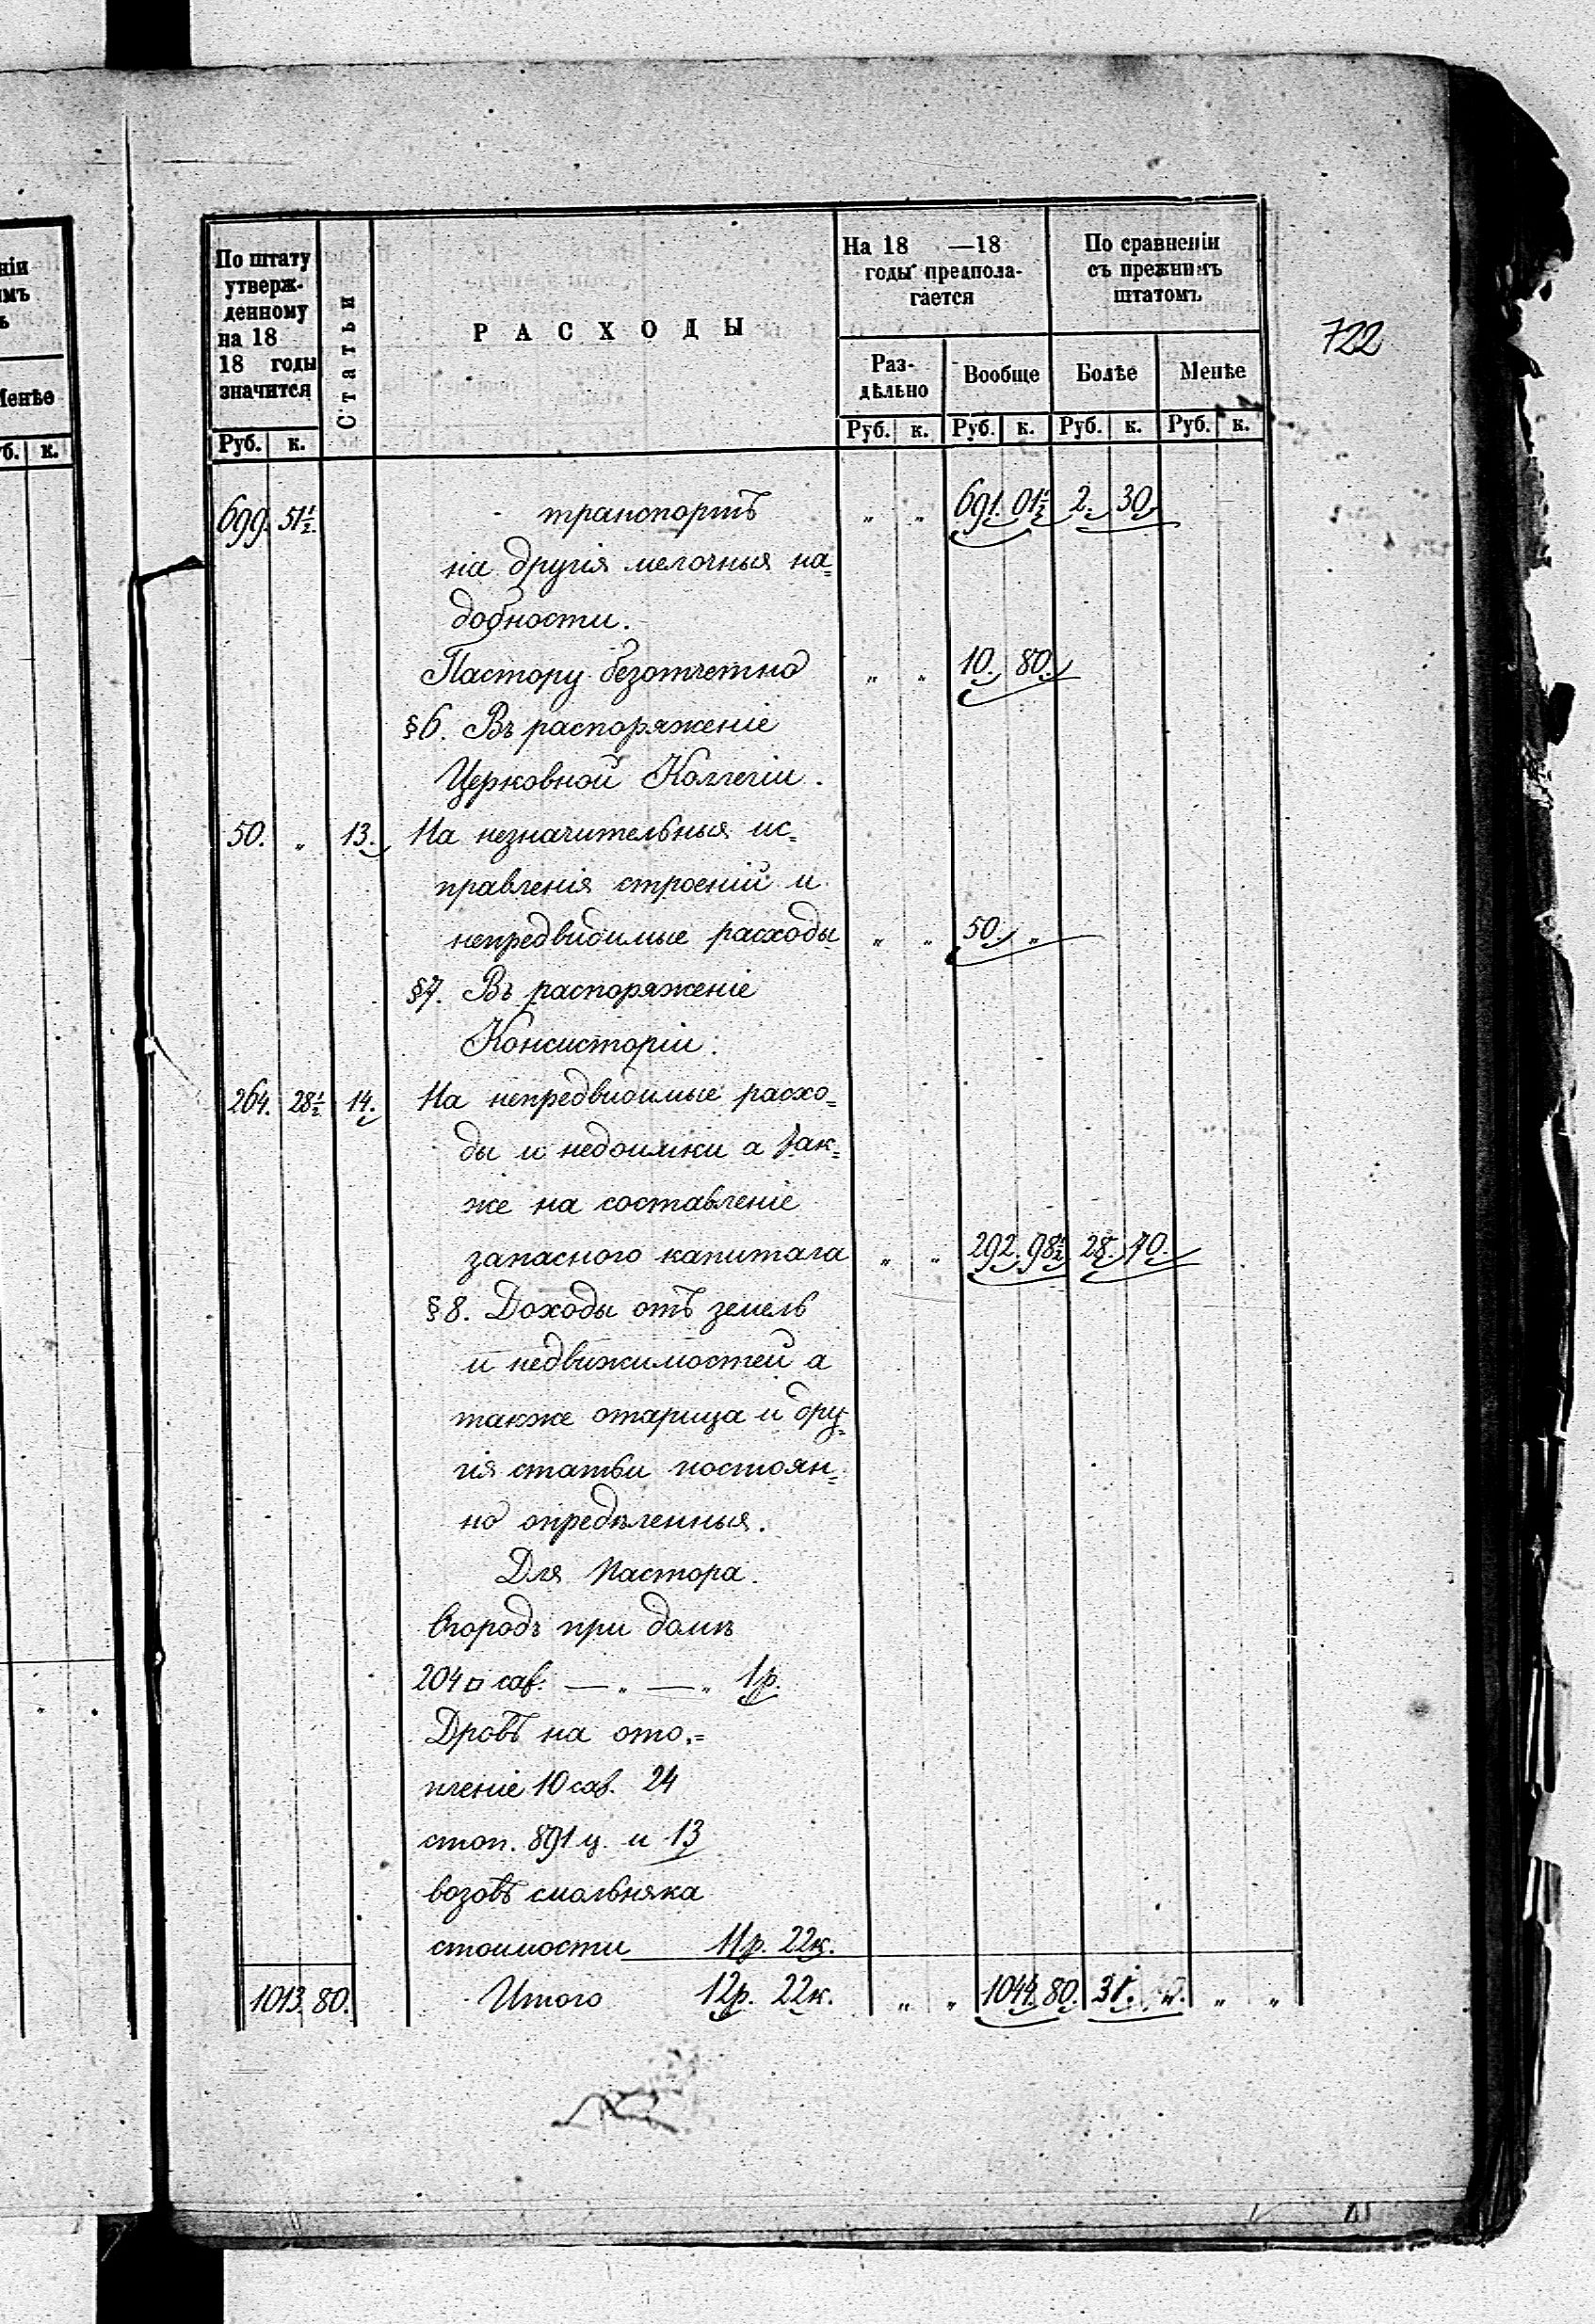 ніи
имъ
ъ
Менѣе
уб. к.
По штату
утверж-
денному
на 18
18 годы
значится
Руб. к.
Статьи
РАСХОДЫ
На 18 —18
годы предпола-
гается
Раз-
дѣльно
Вообще
Руб. к. Руб. к.
По сравненіи
съ прежнимъ
штатомъ
Болѣе Менѣе
Руб. к. Руб. к.
722
699. 51½ транспортъ „ „ 691. 01½ 2. 30.
на другія мелочныя на=
добности.
Пастору безотчетно „ „ 10. 80.
§6. Въ распоряженіе
Церковной Коллегіи.
50. „ 13. На незначительныя ис=
правленія строеній и
непредвидимые расходы „ „ 50. „
§7. Въ распоряженіе
Консисторіи.
264. 28½ 14. На непредвидимые расхо=
ды и недоимки а так=
же на составленіе
запаснаго капитала „ „ 292. 98½ 28. 70.
§8. Доходы отъ земель
и недвижимостей а
также отарица и дру=
гія статьи постоян=
но опредѣленныя.
Для Пастора.
при домѣ
204 □ саж. — „ — „ 1р.
Дровъ на ото=
пленіе 10 саж. 24
стоп. 891 ц. и 13
возовъ смольняка
стоимости 11р. 22к.
1013. 80. Итого 12р. 22к. „ „ 1044. 80. 31. „ „ „